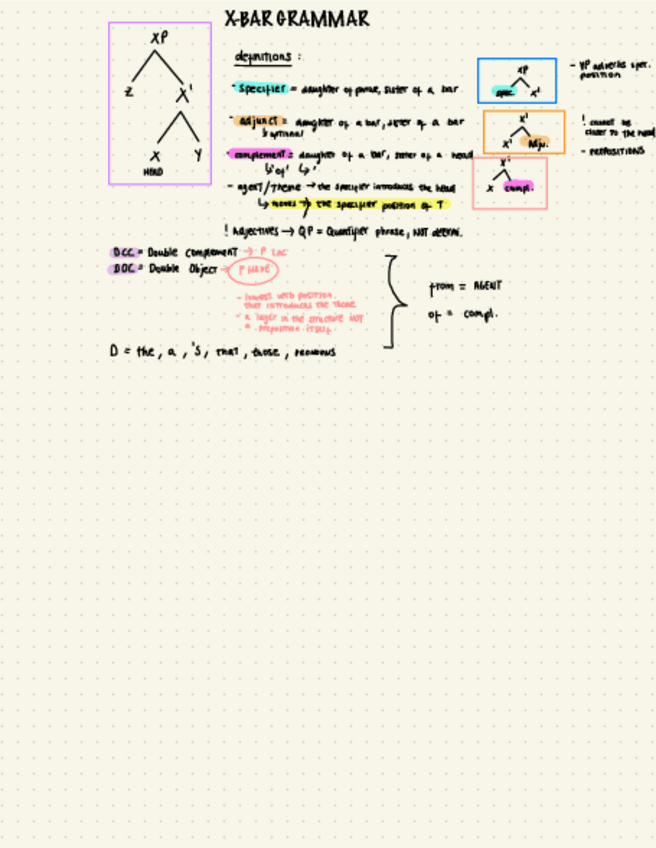 X-BAR GRAMMAR
XP
Z X'
X Y
HEAD
definitions :
- specifier = daughter of phrase, sister of a bar
- adjunct = daughter of a bar, sister of a bar
↳ optional
- complement = daughter of a bar, sister of a head
↳ 'of' ↳ '
- agent/Theme → the specifier introduces the head
↳ moves → the specifier position of T
! Adjectives → QP = Quantifier phrase, NOT determ.
XP
spec. X'
- VP adverbs spec. position
X'
X' Adju.
! cannot be
closer to the head
- PREPOSITIONS
X'
X compl.
DCC = Double Complement → P LOC
DOC = Double Object → P HAVE
- lowest verb position
that introduces the theme
- a layer in the structure not
a preposition itself.
from = AGENT
of = compl.
D = the, a, 's, that, those, pronouns